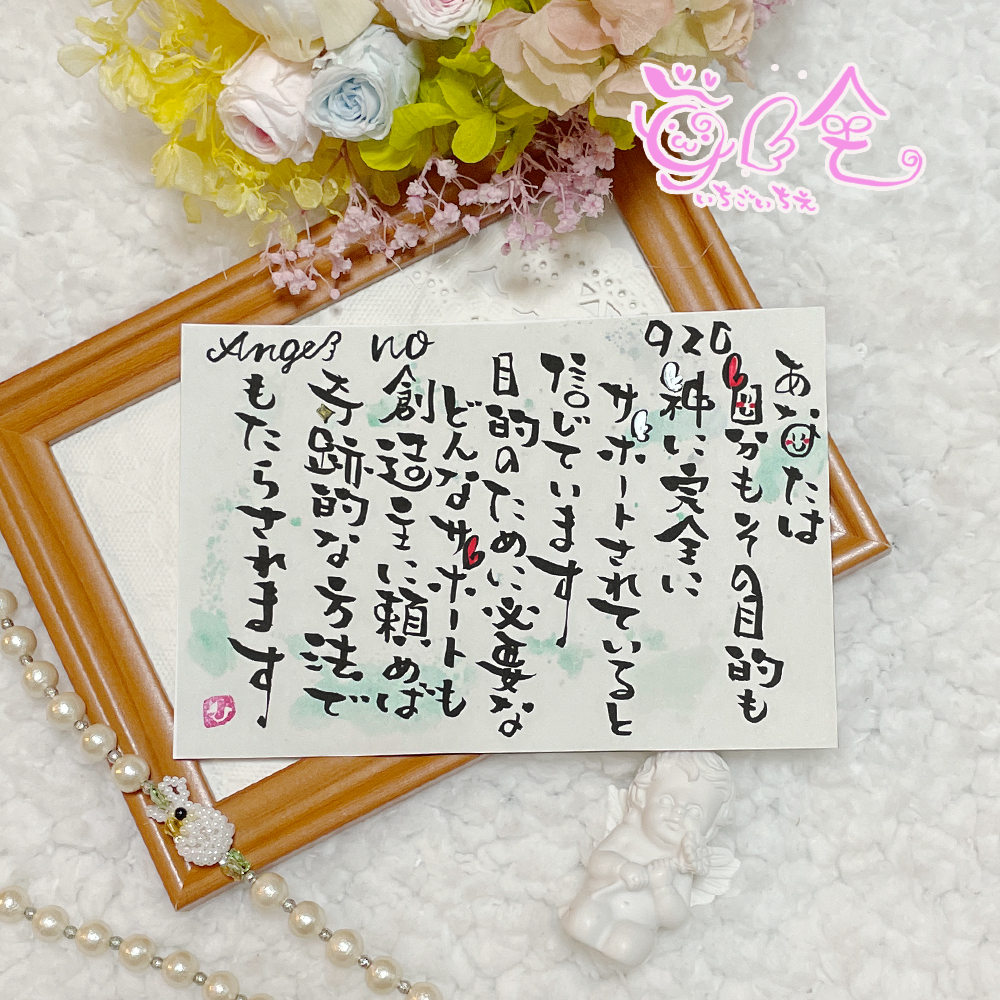 苺絵
いちごいちえ
Angel no
920
あなたは
自分もその目的も
神に完全に
サポートされていると
信じています
目的のために必要な
どんなサポートも
創造主に頼めば
奇跡的な方法で
もたらされます.